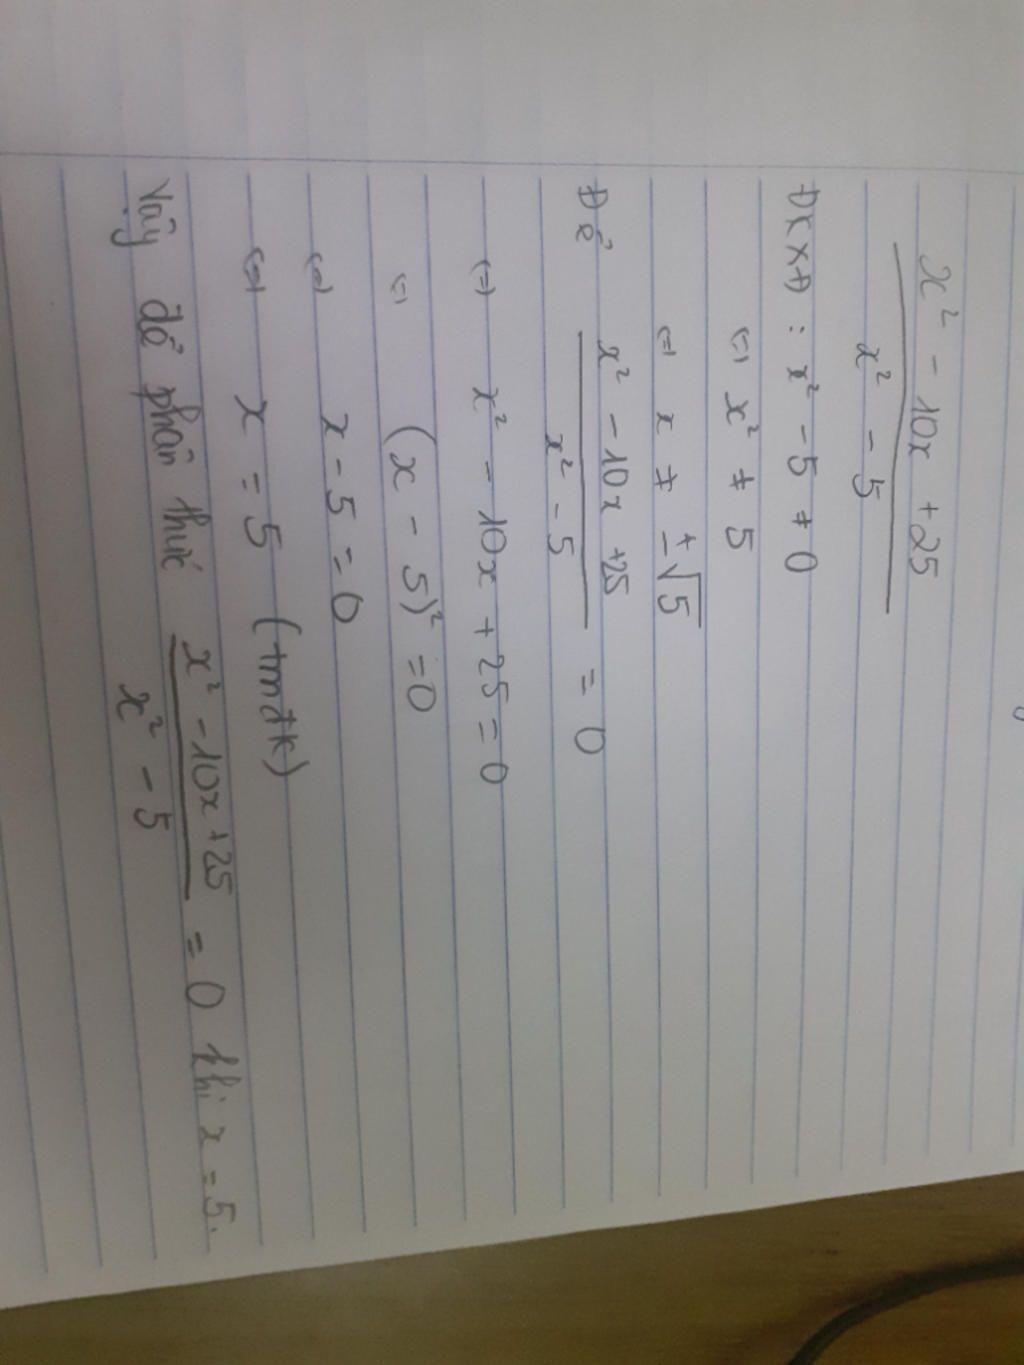 x² - 10x + 25
x² - 5
ĐKXĐ : x² - 5 ≠ 0
(=) x² ≠ 5
(=) x ≠ ±√5
Để x² - 10x + 25 / x² - 5 = 0
(=) x² - 10x + 25 = 0
(=) (x - 5)² = 0
(=) x - 5 = 0
(=) x = 5 (tmđk)
Vậy để phân thức x² - 10x + 25 / x² - 5 = 0 thì x = 5.